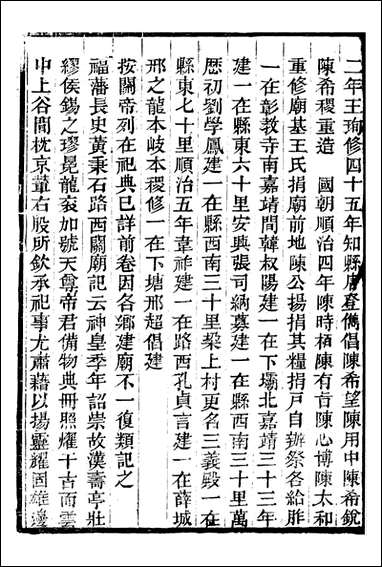 二年王珣修四十五年知縣唐登儁倡陳希望陳用中陳希銳
陳希稷重造　國朝順治四年陳時栢陳有音陳心博陳太和
重修廟基王氏捐廟前地陳公揚捐其糧捐戶自辦祭各給胙
一在彰教寺南嘉靖間韓叔陽建一在下壩北嘉靖三十三年
建一在縣東六十里安興張司納募建一在縣西南三十里萬
歷初劉學鳳建一在縣西南三十里梁上村更名三義殿一在
縣東七十里順治五年韋祥建一在路西孔貞言建一在薛城
邢之龍本岐本稷修一在下塘邢超倡建
按關帝列在祀典已詳前卷因各鄉建廟不一復類記之
福藩長史黃秉石路西關廟記云神皇季年詔崇故漢壽亭壯
繆侯錫之璆冕龍衮加號天尊帝君備物典冊照燿千古而雲
中上谷間枕京輦右股所欽承祀事尤肅藉以揚靈耀固雄邊